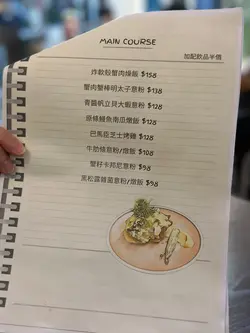 MAIN COURSE
加配飲品半價
炸軟殼蟹肉燥飯 $158
蟹肉蟹棒明太子意粉 $138
青醬帆立貝大蝦意粉 $128
原條鰻魚南瓜燉飯 $128
巴馬臣芝士烤雞 $128
牛肋條意粉/燉飯 $108
蟹籽卡邦尼意粉 $98
黑松露雜菌意粉/燉飯 $98